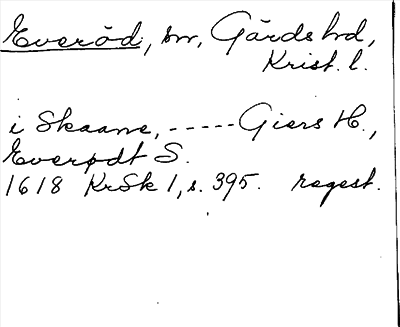 Everöd, sn, Gärds hd,
Krist. l.
i Skaane, ----- Giers H.,
Everødt S.
1618 KrSk 1, s. 395. regest.